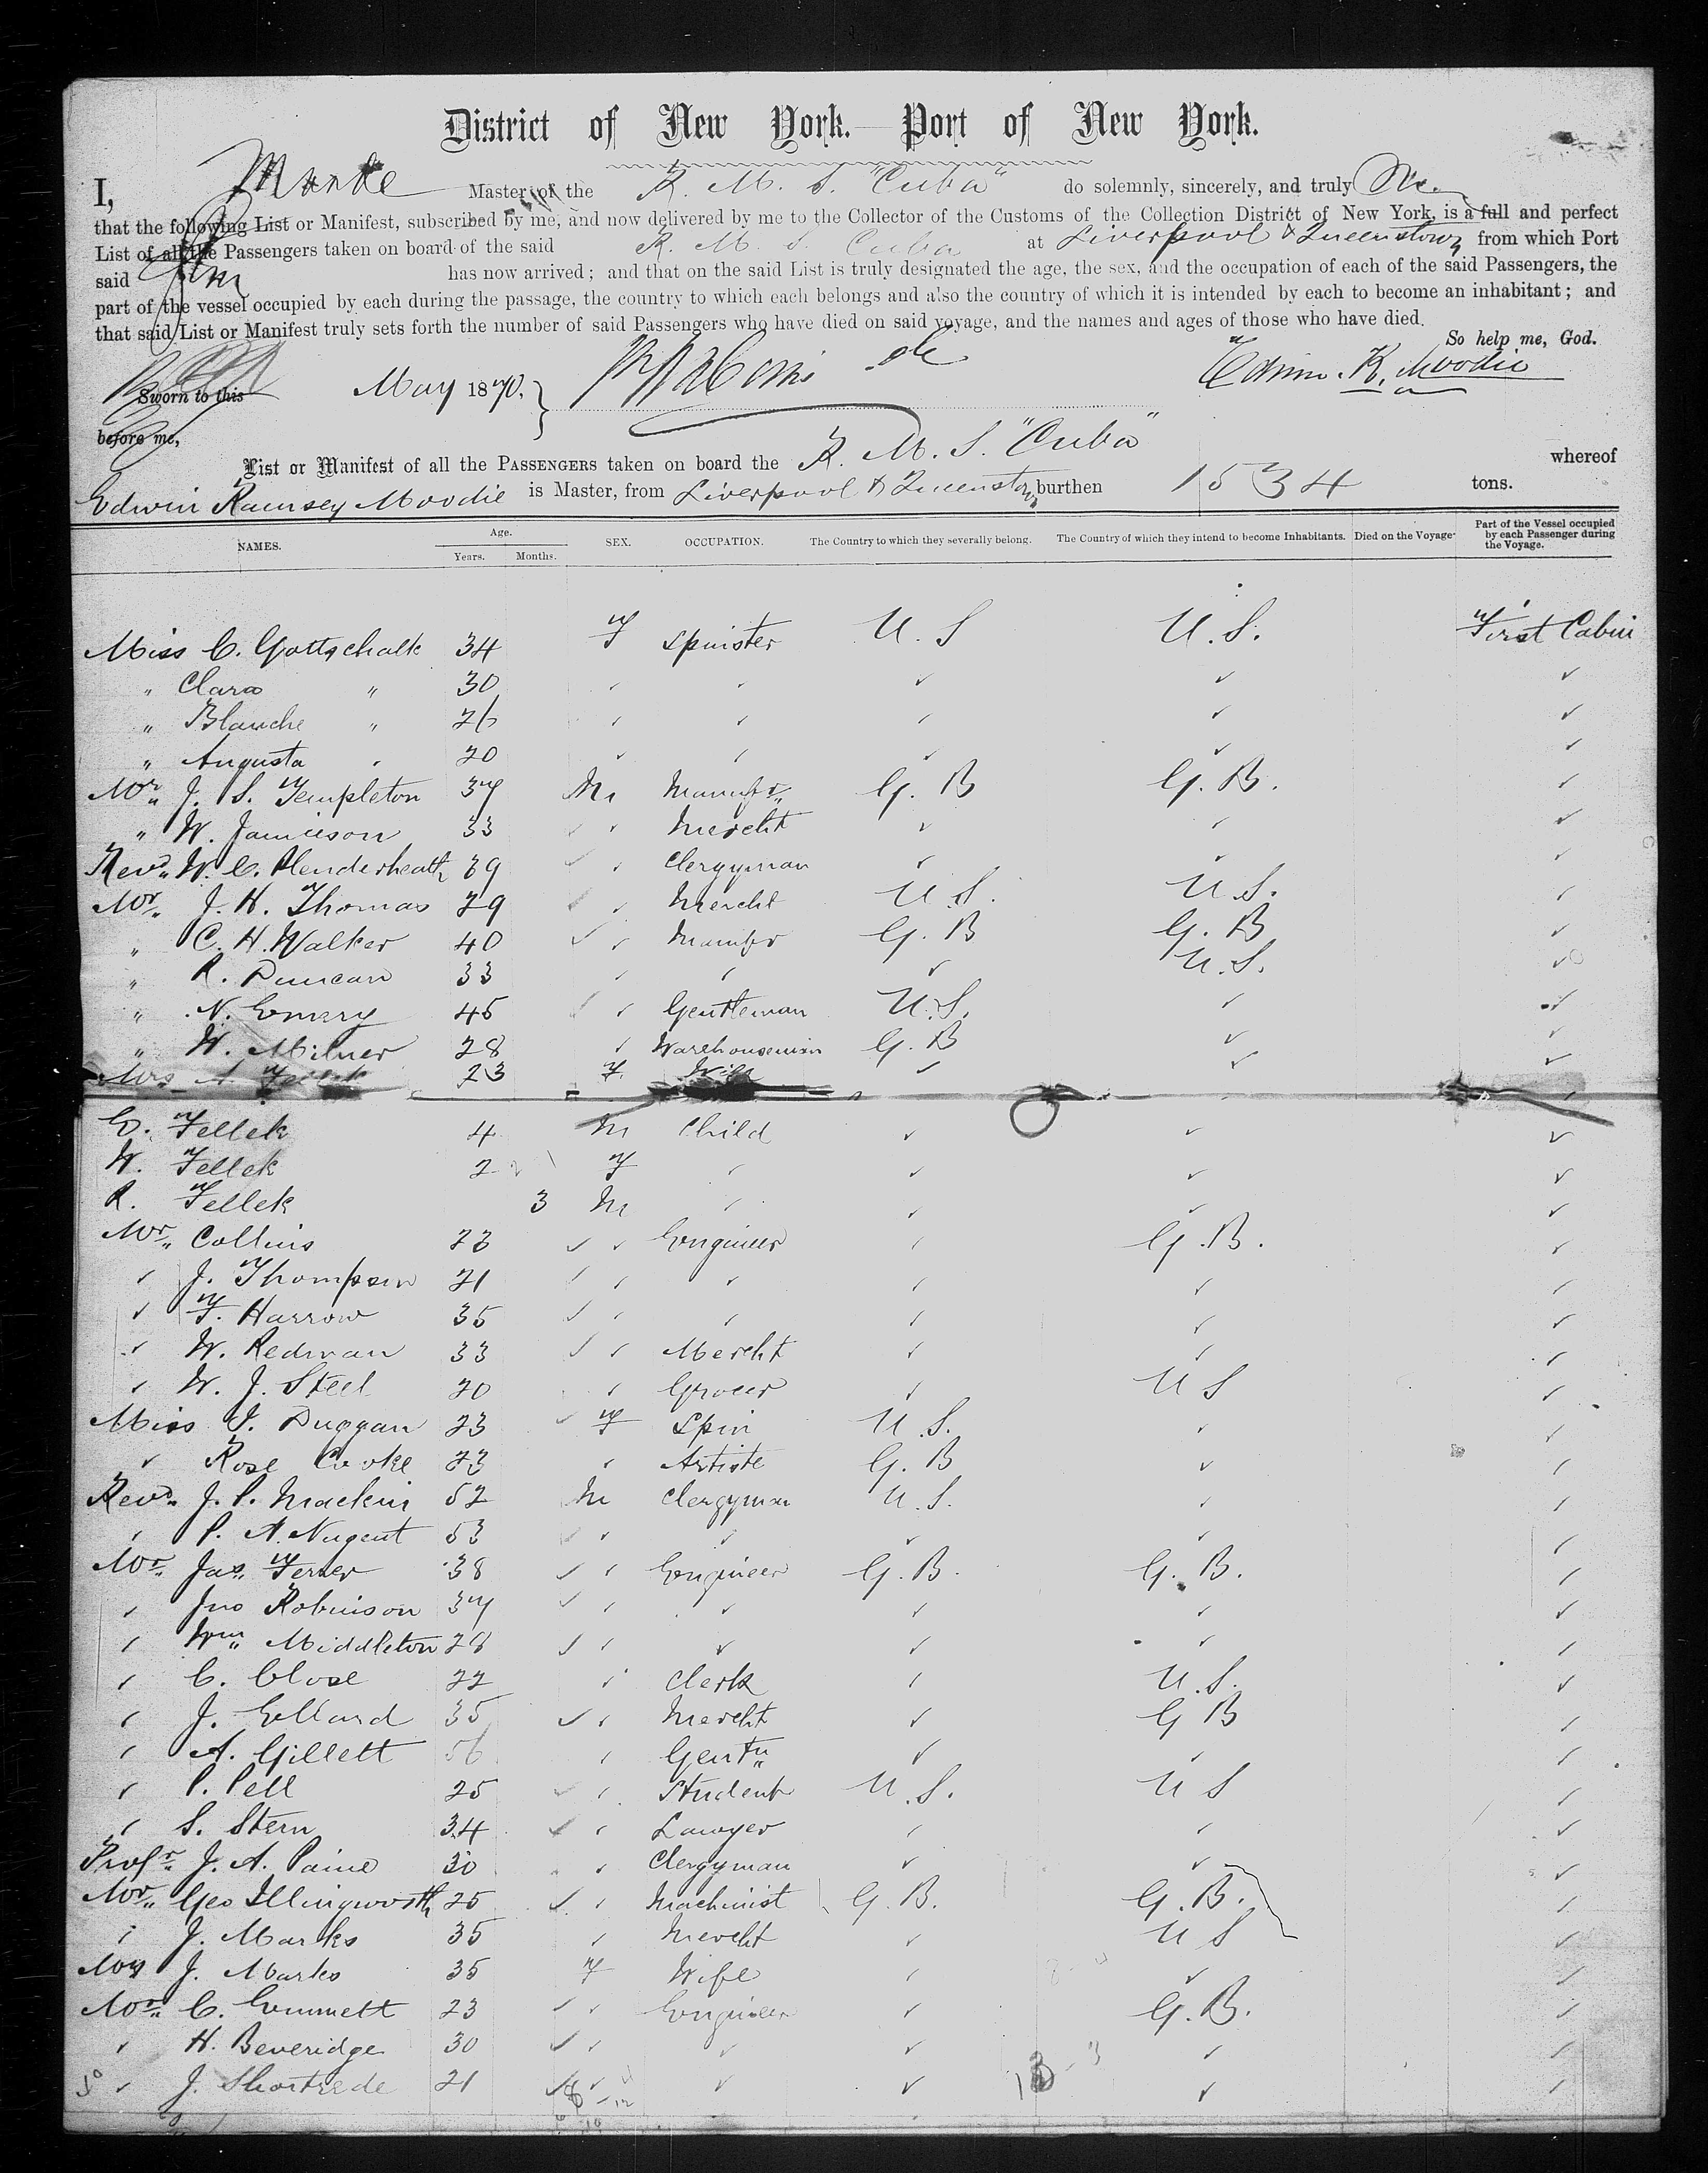 District of New York. — Port of New York.
I, Master of the R. M. S. "Cuba" do solemnly, sincerely, and truly
that the following List or Manifest, subscribed by me, and now delivered by me to the Collector of the Customs of the Collection District of New York, is a full and perfect
List of all the Passengers taken on board of the said R. M. S. Cuba at Liverpool & Queenstown from which Port
said has now arrived; and that on the said List is truly designated the age, the sex, and the occupation of each of the said Passengers, the
part of the vessel occupied by each during the passage, the country to which each belongs and also the country of which it is intended by each to become an inhabitant; and
that said List or Manifest truly sets forth the number of said Passengers who have died on said voyage, and the names and ages of those who have died.
So help me, God.
Sworn to this May 1870. } Edwin. R. Moodie
before me,
List or Manifest of all the PASSENGERS taken on board the R. M. S. "Cuba" whereof
Edwin Ramsey Moodie is Master, from Liverpool & Queenstown burthen 1534 tons.
NAMES. Age. Years. Months. SEX. OCCUPATION. The Country to which they severally belong. The Country of which they intend to become Inhabitants. Died on the Voyage. Part of the Vessel occupied by each Passenger during the Voyage.
Miss C. Gottschalk 34 F Spinster U. S U. S. First Cabin
" Clara " 30 ✓ ✓ ✓ ✓ ✓
" Blanche " 26 ✓ ✓ ✓ ✓ ✓
" Augusta " 20 ✓ ✓ ✓ ✓ ✓
Mr. J. S. Templeton 37 M Manufr. G. B G. B. ✓
" W. Jamieson 33 ✓ Mercht ✓ ✓ ✓
Revd. W. C. 39 ✓ Clergyman ✓ ✓ ✓
Mr. J. H. Thomas 29 ✓ Mercht U. S. U. S. ✓
" C. H. Walker 40 ✓ Manufr G. B G. B ✓
" R. Duncan 33 ✓ ✓ ✓ U. S. ✓
" N. Emery 45 ✓ Gentleman U. S. ✓ ✓
" W. Milner 28 ✓ Warehouseman G. B ✓ ✓
Mrs A. Fellek 23 F. Wife ✓ ✓ ✓
E. Fellek 4 M Child ✓ ✓ ✓
W. Fellek 2 F ✓ ✓ ✓ ✓
R. Fellek 3 M ✓ ✓ ✓ ✓
Mr. Collins 23 ✓ Engineer ✓ G. B. ✓
✓ J. Thompson 21 ✓ ✓ ✓ ✓ ✓
✓ F. Harrow 35 ✓ ✓ ✓ ✓ ✓
✓ W. Redman 33 ✓ Mercht ✓ ✓ ✓
✓ W. J. Steel 20 ✓ Grocer ✓ U S ✓
Miss J. Duggan 23 F Spin U. S. ✓ ✓
✓ Rose Cooke 23 ✓ Artiste G. B ✓ ✓
Revd. J. P. Mackin 52 M Clergyman U. S. ✓ ✓
✓ P. A. Nugent 53 ✓ ✓ ✓ ✓ ✓
Mr. Jas. Ferrer 38 ✓ Engineer G. B. G. B. ✓
✓ Jno Robinson 37 ✓ ✓ ✓ ✓ ✓
✓ Wm. Middleton 28 ✓ ✓ ✓ ✓ ✓
✓ C. Close 22 ✓ Clerk ✓ U. S. ✓
✓ J. Ellard 35 ✓ Mercht ✓ G B ✓
✓ A. Gillett 56 ✓ Gentn ✓ ✓ ✓
✓ P. Pell 25 ✓ Student U. S. U S ✓
✓ S. Stern 34 ✓ Lawyer ✓ ✓ ✓
Profr. J. A. Paine 30 ✓ Clergyman ✓ ✓ ✓
Mr. Geo Illingworth 25 ✓ Machinist G. B. G. B. ✓
✓ J. Marks 35 ✓ Mercht ✓ U S ✓
Mrs J. Marks 35 F Wife ✓ ✓ ✓
Mr. C. Emmett 23 ✓ Engineer ✓ G. B. ✓
✓ H. Beveridge 30 ✓ ✓ ✓ ✓ ✓
✓ J. Shortrede 21 ✓ ✓ ✓ ✓ ✓